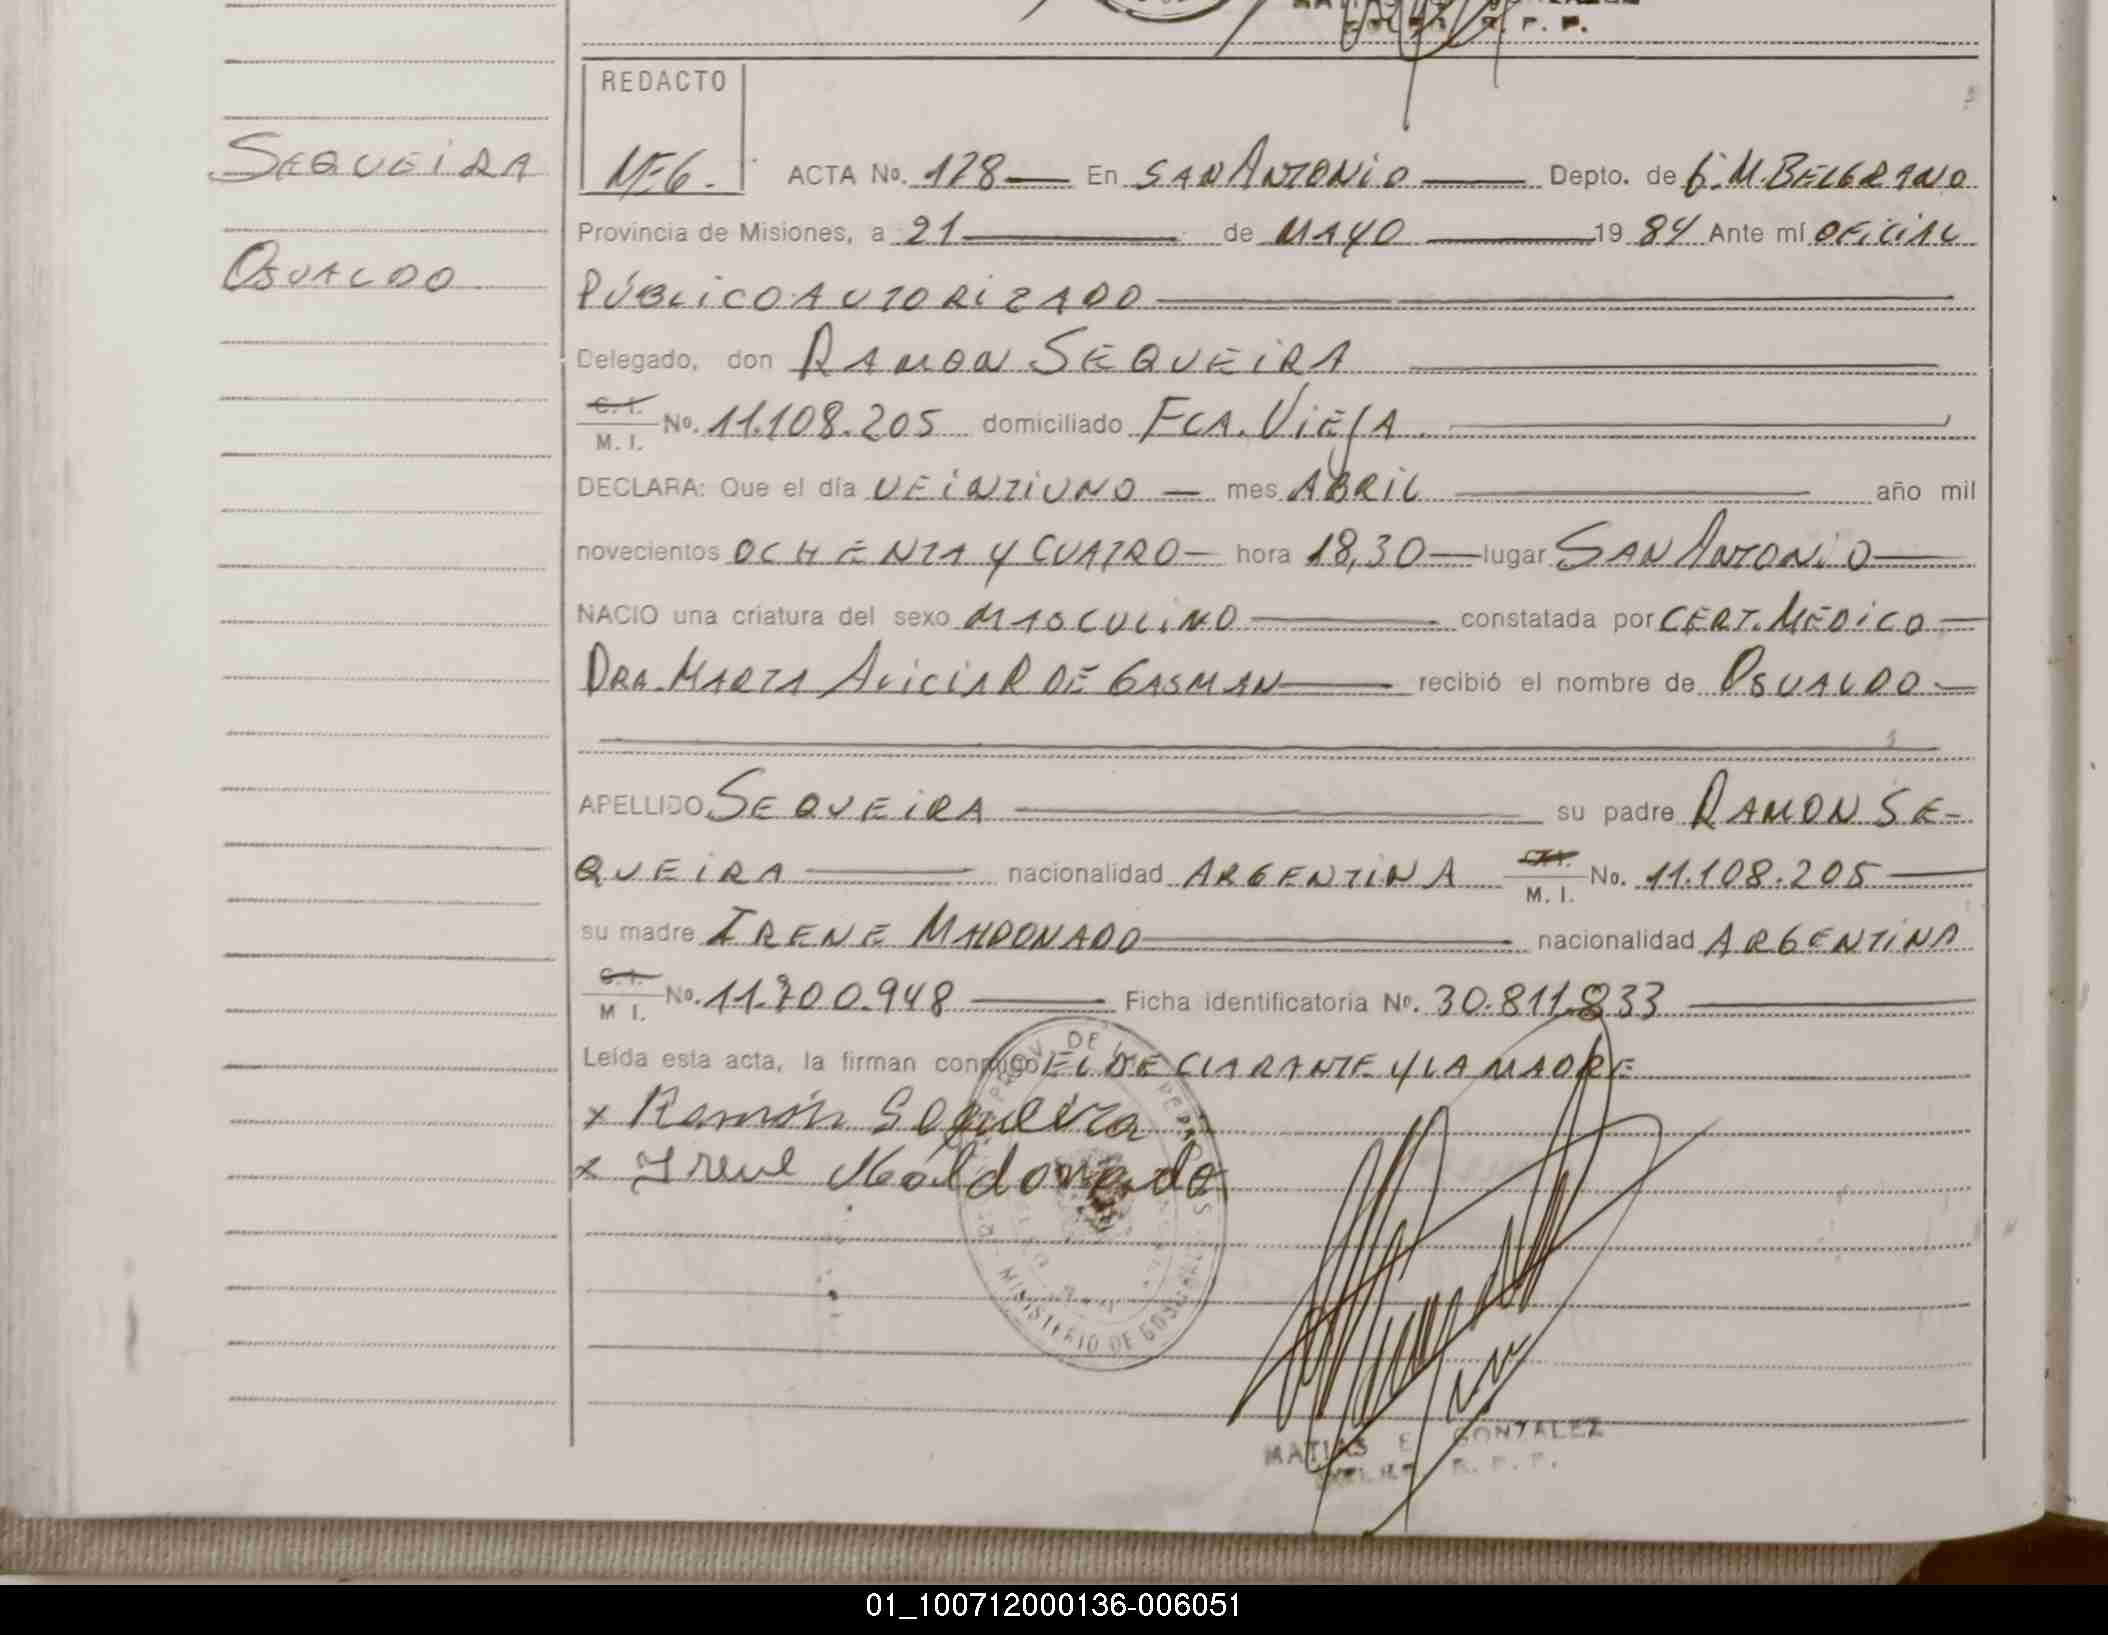 R. P. P.
REDACTO
SEQUEIRA
MEG. ACTA No. 128 En SAN ANTONIO Depto. de G. M. BELGRANO
Provincia de Misiones, a 21 de MAYO 19 84 Ante mí OFICIAL
OSVALDO
PÚBLICO AUTORIZADO
Delegado, don RAMON SEQUEIRA
C. I.
M. I. No. 11.108.205 domiciliado FCA. VIEJA
DECLARA: Que el día VEINTIUNO mes ABRIL año mil
novecientos OCHENTA Y CUATRO hora 18,30 lugar SAN ANTONIO
NACIO una criatura del sexo MASCULINO constatada por CERT. MEDICO
DRA. MARTA ALICIA R DE GASMAN recibió el nombre de OSVALDO
APELLIDO SEQUEIRA su padre RAMON SE-
QUEIRA nacionalidad ARGENTINA M. I. No. 11.108.205
su madre IRENE MALDONADO nacionalidad ARGENTINA
C. I.
M I. No. 11.700.948 Ficha identificatoria No. 30.811.833
Leída esta acta, la firman conmigo EL DECLARANTE Y LA MADRE
x Ramón Sequeira
x Irene Maldonado
PROV. DE
MINISTERIO DE GOBIERNO
MATIAS E. GONZALEZ
R. P. P.
01_100712000136-006051